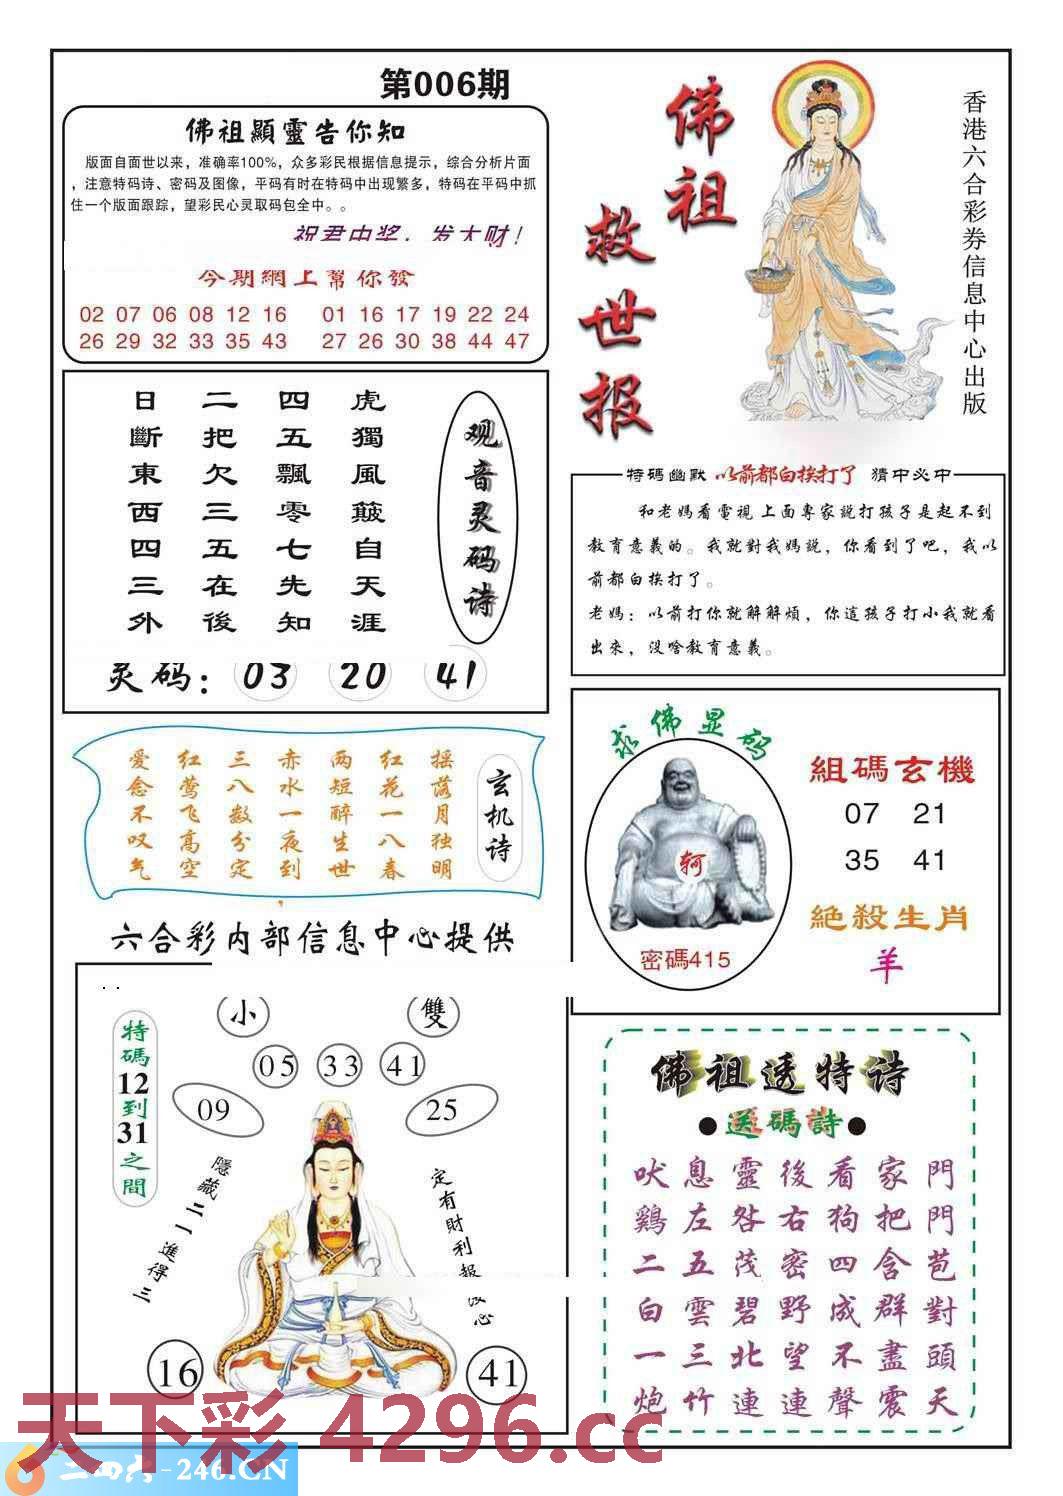 第006期
佛祖顯靈告你知
版面自面世以来，准确率100%，众多彩民根据信息提示，综合分析片面
，注意特码诗、密码及图像，平码有时在特码中出现繁多，特码在平码中抓
住一个版面跟踪，望彩民心灵取码包全中。。
祝君中奖，发大财！
今期網上幫你發
02 07 06 08 12 16 01 16 17 19 22 24
26 29 32 33 35 43 27 26 30 38 44 47
佛祖
救世报
香港六合彩券信息中心出版
日 二 四 虎
斷 把 五 獨
東 欠 飄 風
西 三 零 皺
四 五 七 自
三 在 先 天
外 後 知 涯
观音灵码诗
灵码：03 20 41
特碼幽默 以前都白挨打了 猜中必中
和老媽看電視上面專家説打孩子是起不到
教育意義的。我就對我媽説，你看到了吧，我以
前都白挨打了。
老媽：以前打你就解解煩，你這孩子打小我就看
出來，没啥教育意義。
爱 红 三 赤 两 红 摇
念 莺 八 水 短 花 落
不 飞 数 一 醉 一 月
叹 高 分 夜 生 八 独
气 空 定 到 世 春 明
玄机诗
求佛显码
密碼415
組碼玄機
07 21
35 41
絕殺生肖
羊
六合彩内部信息中心提供
小 雙
05 33 41
09 25
特碼12到31之間
隱藏二一進得三
定有財利報
心
16 41
佛祖透特诗
●送碼詩●
吠 息 靈 後 看 家 門
鷄 左 咎 右 狗 把 門
二 五 茂 密 四 含 苞
白 雲 碧 野 成 群 對
一 三 北 望 不 盡 頭
炮 竹 連 連 聲 震 天
天下彩 4296.cc
二四六-246.CN